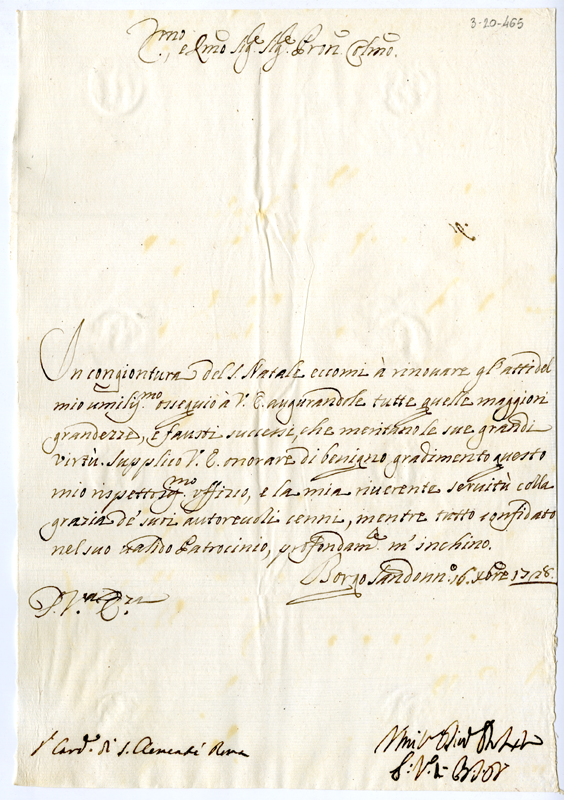 3-20-465
Em̃o, e Rm̃o Sig.r Sig.r Prõn Colm̃o.
In congiontura del S. Natale eccomi à rinovare gl'atti del
mio umiliss.mo ossequio à V. E. augurandole tutte quelle maggiori
grandezze, e fausti successi, che meritano le sue grandi
virtù. Supplico V. E. onorare di benigno gradimento questo
mio rispettosiss.mo uffizio, e la mia riverente servitù colla
grazia de' suoi autorevoli cenni, mentre tutto confidato
nel suo valido Patrocinio, profondam.te m'inchino.
Borgo Sandonn.o 16. Xbre 1728.
D. V. E.
S.r Card.e di S. Clemente Roma